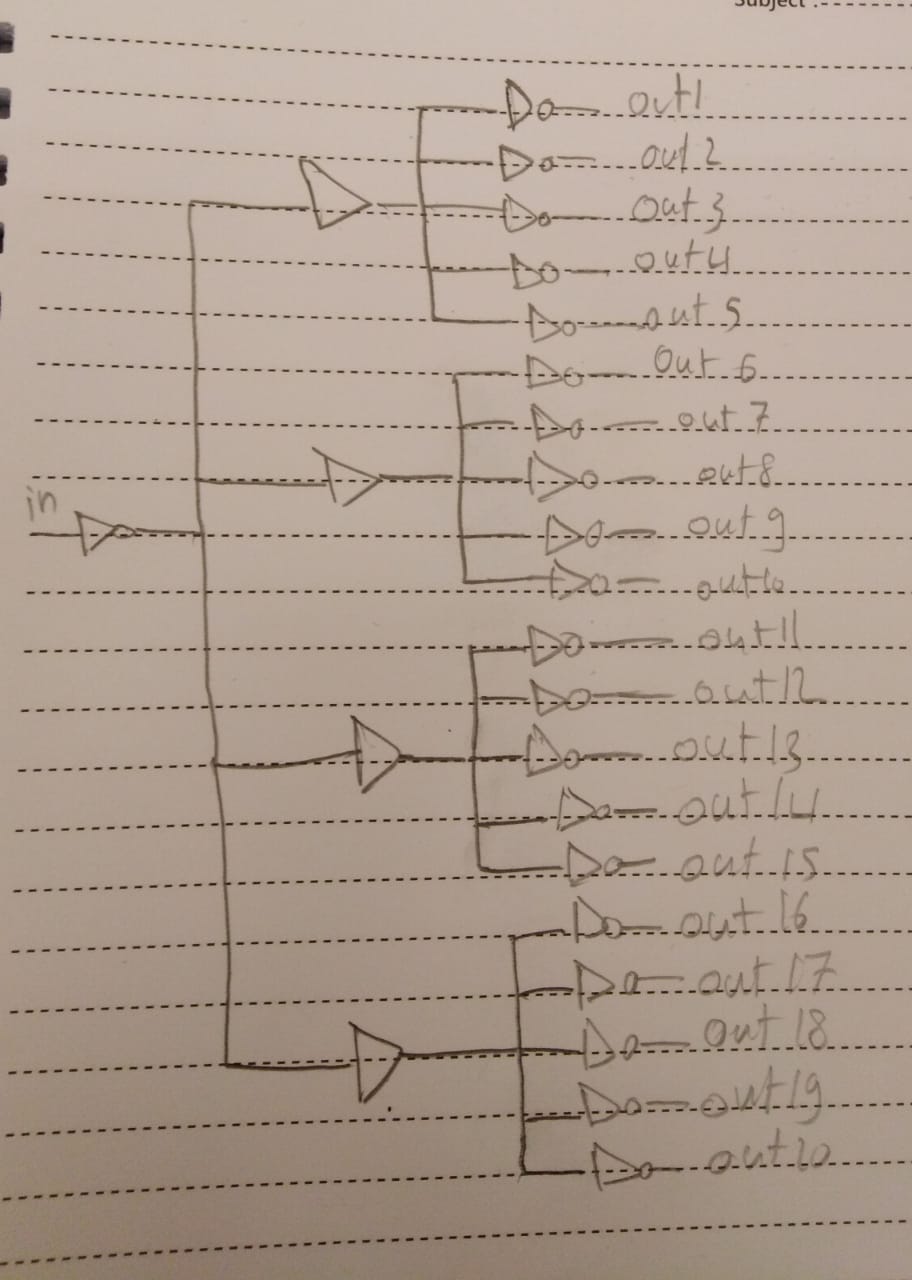 Subject :
out1
out 2
out 3
out 4
out 5
out 6
out 7
out 8
in
out 9
out 10
out 11
out 12
out 13
out 14
out 15
out 16
out 17
out 18
out 19
out 20